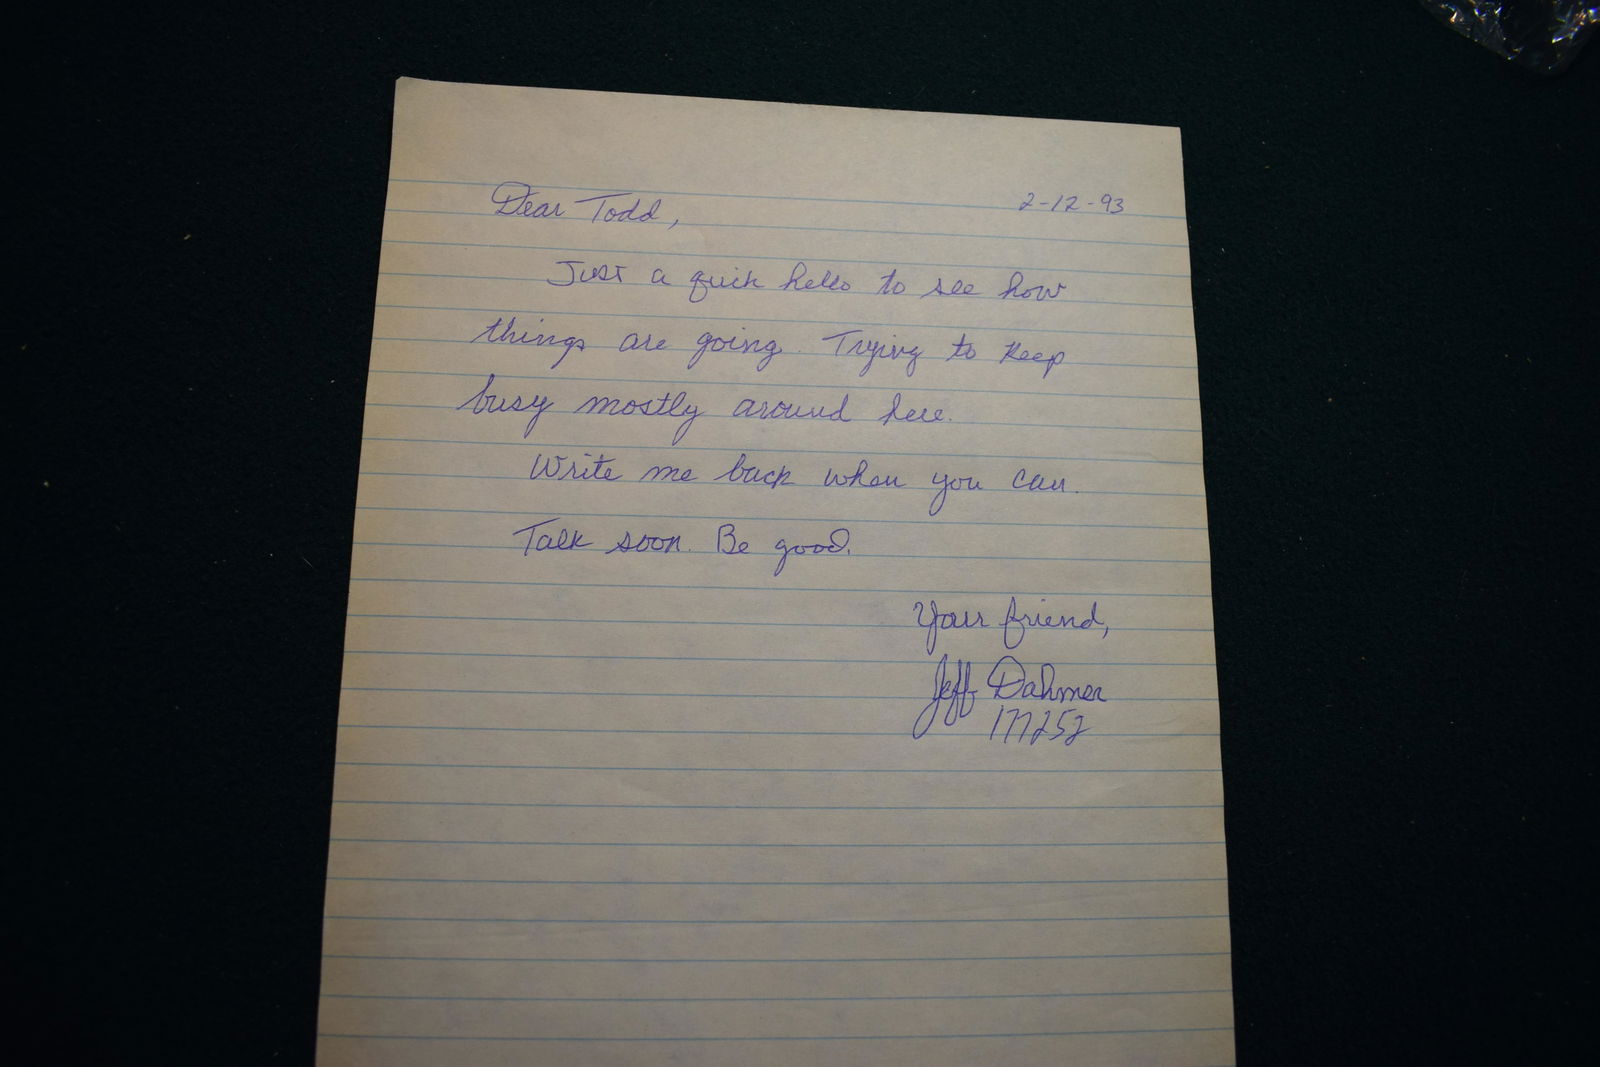 Dear Todd,
2-12-93
Just a quick hello to see how
things are going. Trying to keep
busy mostly around here.
Write me back when you can.
Talk soon. Be good.
Your friend,
Jeff Dahmer
177252